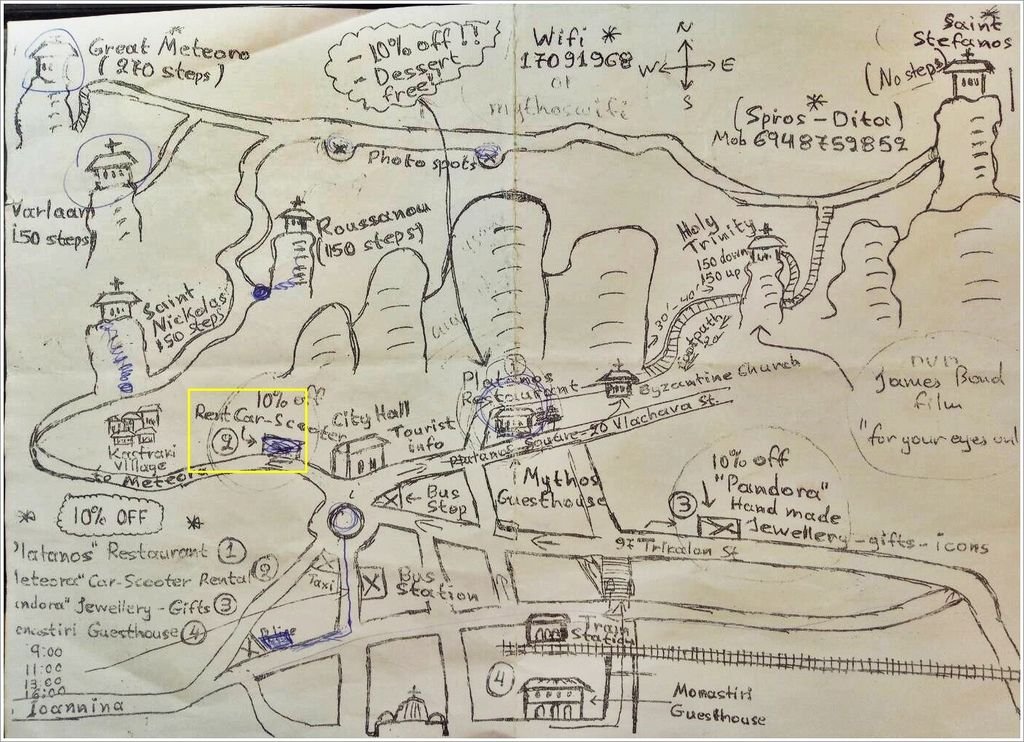 Great Meteoro
(270 steps)
- 10% off !!
- Dessert
free!
Wifi *
17091968
or
mythoswifi
N
W E
S
Saint
Stefanos
(No steps)
*
(Spiros-Dita)
Mob 6948759852
Photo spots
Varlaam
150 steps)
Roussanou
(150 steps)
Saint
Nickolas
150 steps)
Holy
Trinity
150 down
150 up
30'-40'
footpath
James Bond
film
"for your eyes onl
Platanos
Restaurant
1
Byzantine Church
Square-20 Vlachava St.
10% off
Rent Car-Scooter
2
City Hall
Tourist
info
Kastraki
Village
to Meteora
Mythos
Guesthouse
Bus
Stop
10% off
"Pandora"
3
Hand made
Jewellery-gifts-icons
97 Trikalon St
* 10% OFF *
latanos" Restaurant 1
eteora" Car-Scooter Rental 2
ndora" Jewellery-Gifts 3
onastiri Guesthouse 4
9:00
11:00
13:00
16:00
Ioannina
Taxi
Police
Bus
Station
Train
Station
4
Monastiri
Guesthouse